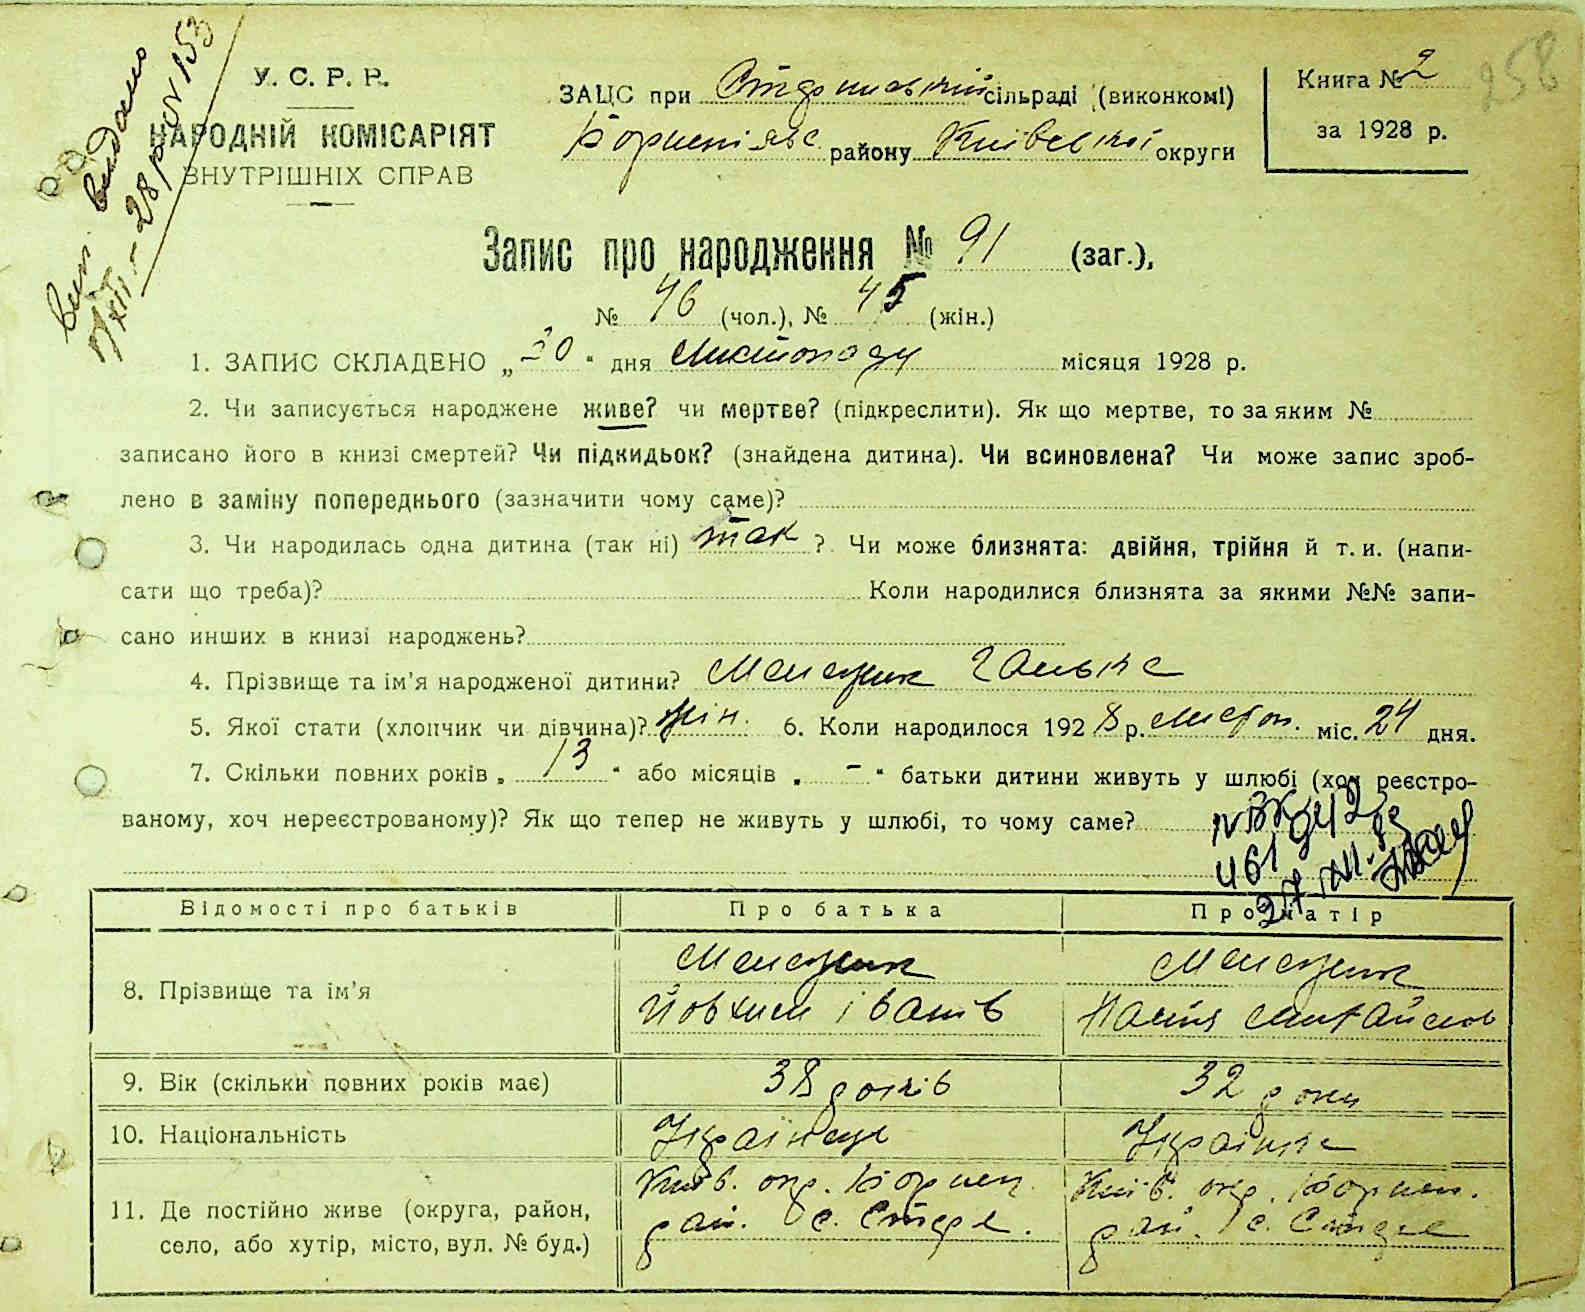 258
вип. видано
28 р.
У. С. Р. Р.
НАРОДНІЙ КОМІСАРІЯТ
ВНУТРІШНІХ СПРАВ
ЗАЦС при сільраді (виконкомі)
району Київської округи
Книга № 2
за 1928 р.
Запис про народження № 91 (заг.),
№ 46 (чол.), № 45 (жін.)
1. ЗАПИС СКЛАДЕНО „30“ дня Листопаду місяця 1928 р.
2. Чи записується народжене живе? чи мертве? (підкреслити). Як що мертве, то за яким №
записано його в книзі смертей? Чи підкидьок? (знайдена дитина). Чи всиновлена? Чи може запис зроб-
лено в заміну попереднього (зазначити чому саме)?
3. Чи народилась одна дитина (так ні) так ? Чи може близнята: двійня, трійня й т. и. (напи-
сати що треба)? Коли народилися близнята за якими №№ запи-
сано инших в книзі народжень?
4. Прізвище та ім’я народженої дитини? Ганька
5. Якої стати (хлопчик чи дівчина)? жін. 6. Коли народилося 1928 р. листоп. міс. 24 дня.
7. Скільки повних років „13“ або місяців „-“ батьки дитини живуть у шлюбі (хоч реєстро-
ваному, хоч нереєстрованому)? Як що тепер не живуть у шлюбі, то чому саме?
461
Відомості про батьків Про батька Про матір
8. Прізвище та ім’я
Йовхим Іванів
9. Вік (скільки повних років має) 38 років 32 роки
10. Національність Українець Українка
11. Де постійно живе (округа, район,
село, або хутір, місто, вул. № буд.)
Київ. окр.
рай. с.
Київ. окр.
рай. с.